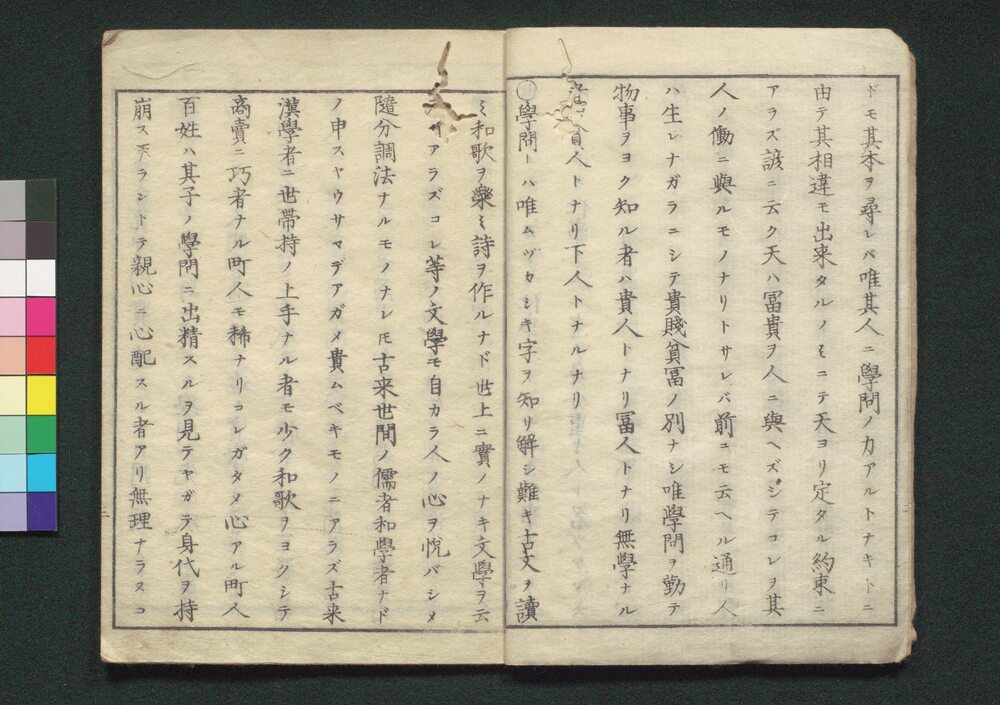 ドモ其本ヲ尋レバ唯其人ニ學問ノ力アルトナキトニ
由テ其相違モ出来タルノミニテ天ヨリ定タル約束ニ
アラズ諺ニ云ク天ハ冨貴ヲ人ニ與ヘズシテコレヲ其
人ノ働ニ與ルモノナリトサレバ前ニモ云ヘル通リ人
ハ生レナガラニシテ貴賤貧冨ノ別ナシ唯學問ヲ勤テ
物事ヲヨク知ル者ハ貴人トナリ冨人トナリ無學ナル
貧人トナリ下人トナルナリ
學問トハ唯ムヅカシキ字ヲ知リ解シ難キ古文ヲ讀
ミ和歌ヲ樂ミ詩ヲ作ルナド世上ニ實ノナキ文學ヲ云
アラズコレ等ノ文學モ自カラ人ノ心ヲ悦バシメ
隨分調法ナルモノナレ𪜈古来世間ノ儒者和學者ナド
ノ申スヤウサマデアガメ貴ムベキモノニアラズ古来
漢學者ニ世帯持ノ上手ナル者モ少ク和歌ヲヨクシテ
商賣ニ巧者ナル町人モ稀ナリコレガタメ心アル町人
百姓ハ其子ノ學問ニ出精スルヲ見テヤガテ身代ヲ持
崩スナラントテ親心ニ心配スル者アリ無理ナラヌコ